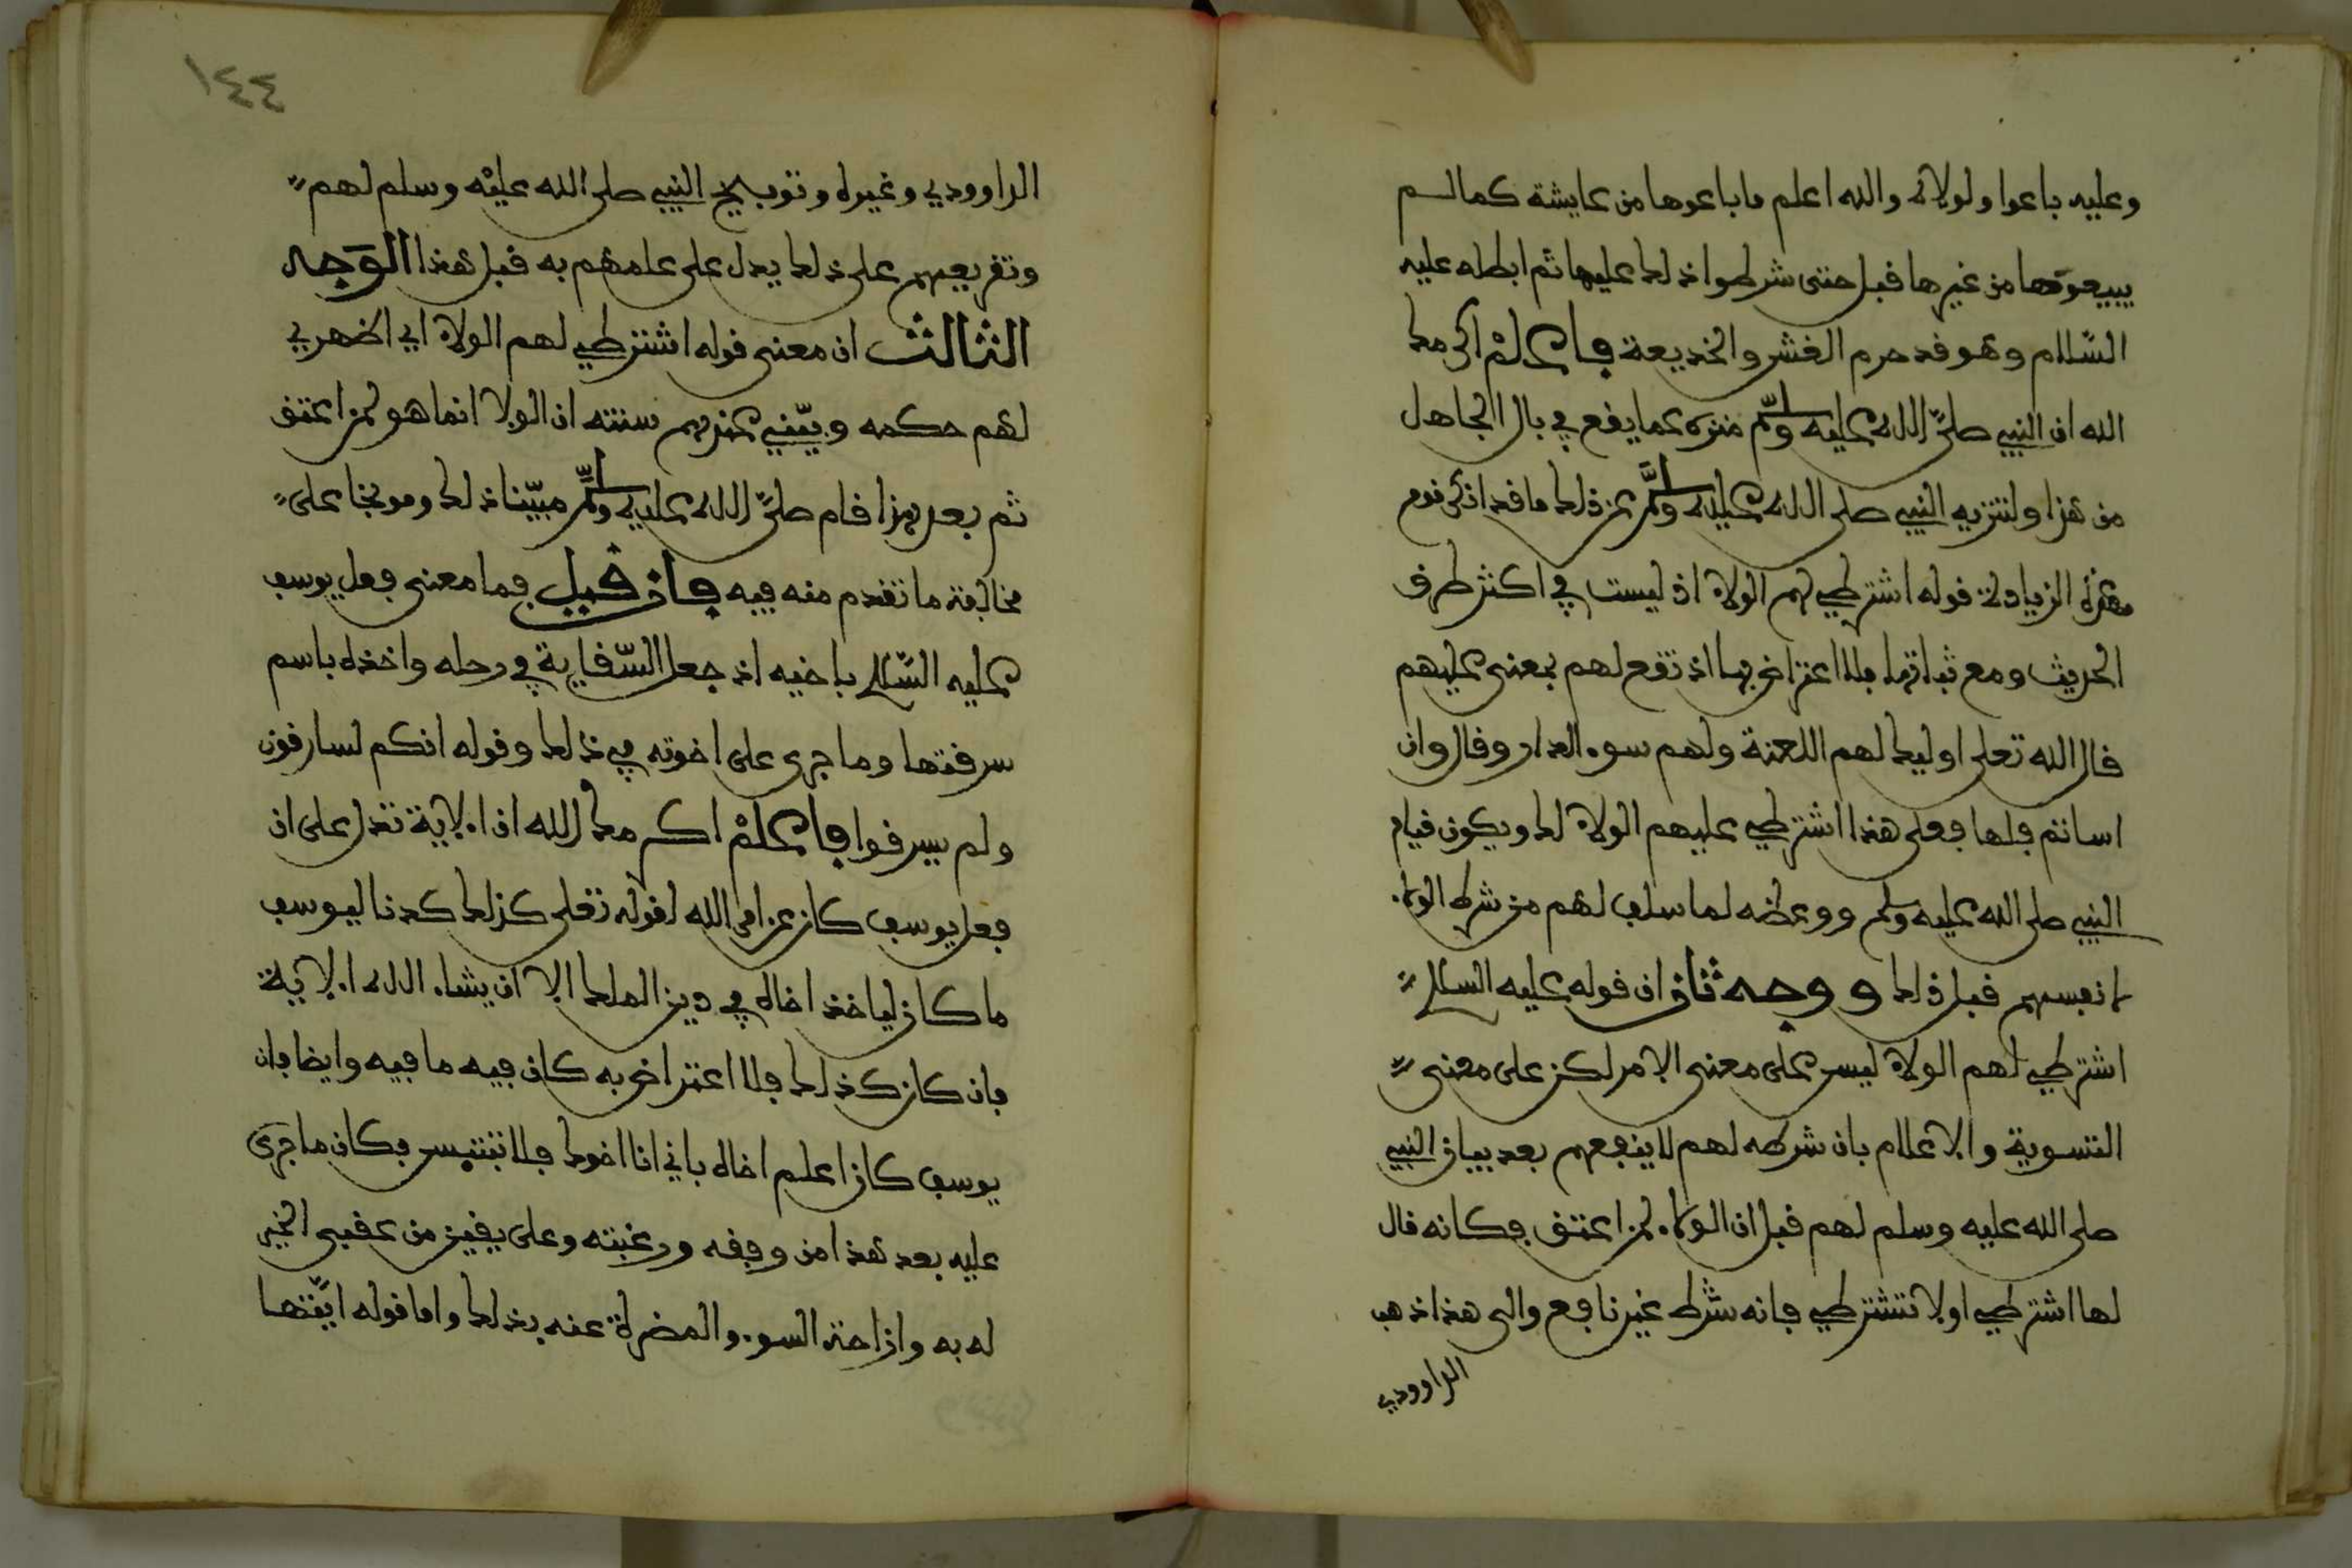 وعليه باعوا ولولاه والله اعلم ما باعوها من عايشة كما لم
يبيعوها من غيرها قبل حتى شرطوا ذلك عليها ثم ابطله عليه
السّلام وهو قد حرم الغش والخديعة فاعلمْ اكرمك
الله ان النبي صلىّ الله عليه وسلّم منزه عما يقع في بال الجاهل
من هذا ولتنزيه النبي صلى الله عليه وسلَّم عن ذلك ما قد انكر قوم
هذه الزيادة قوله اشترطي لهم الولاء اذ ليست في اكثر طرق
الحديث ومع ثباتها فلا اعتراض بها اذ تقع لهم بمعنى عليهم
قال الله تعلى اوليك لهم اللعنة ولهم سوء الدار وقال وان
اساتم فلها فعلى هذا اشترطي عليهم الولاء لك ويكون قيام
النبي صلى الله عليه وسلم ووعظه لما سلف لهم من شرط الولاء
لانفسهم قبل ذلك ووجه ثان ان قوله عليه السلام
اشترطي لهم الولاء ليس على معنى الامر لكن على معنى
التسوية والاعلام بان شرطه لهم لا ينفعهم بعد بيان النبي
صلى الله عليه وسلم لهم قبل ان الولاء لمن اعتق فكانه قال
لها اشترطي اولا تشترطي فانه شرط غير نافع والى هذا ذهب
الداوودي
١٤٤
الداوودي وغيره وتوبيخ النبي صلى الله عليْه وسلم لهم
وتقريعهم على ذلك يدل على علمهم به قبل هذا الوَجه
الثالث ان معنى قوله اشترطي لهم الولاء اي اظهري
لهم حكمه وبيّني عندهم سنته ان الولا انما هو لمن اعتق
ثم بعد هذا قام صلىّ الله عليه وسلَّم مبيّنا ذلك وموبخا على
مخالفة ما تقدم منه فيه فان قيل فما معنى فعل يوسف
عليه السّلام باخيه اذ جعل السّقاية في رحله واخذه باسم
سرقتها وما جرى على اخوته في ذلك وقوله انكم لسارقون
ولم يسرقوا فاعلمْ اكرمك الله ان الاية تدل على ان
فعل يوسف كان عن امر الله لقوله تعلى كذلك كدنا ليوسف
ما كان لياخذ اخاه في دين الملك الا ان يشاء الله الاية
فان كان كذلك فلا اعتراض به كان فيه ما فيه وايضا فان
يوسف كان اعلم اخاه باني انا اخوك فلا تبتيس فكان ما جرى
عليه بعد هذا من وفقه ورغبته وعلى يقين من عقبى الخير
له به وازاحة السوء والمضرة عنه بذلك واما قوله ايّتها